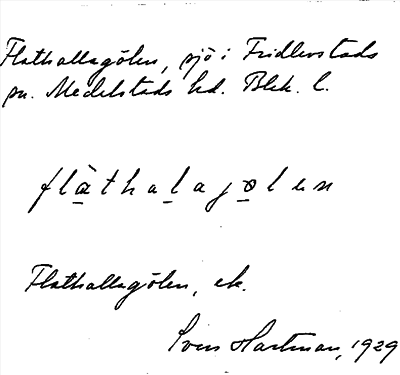 Flathallagölen, sjö i Fridlevstads
sn. Medelstads hd. Blek. l.
flàthalagølen
Flathallagölen, ek.
Sven Hartman, 1929